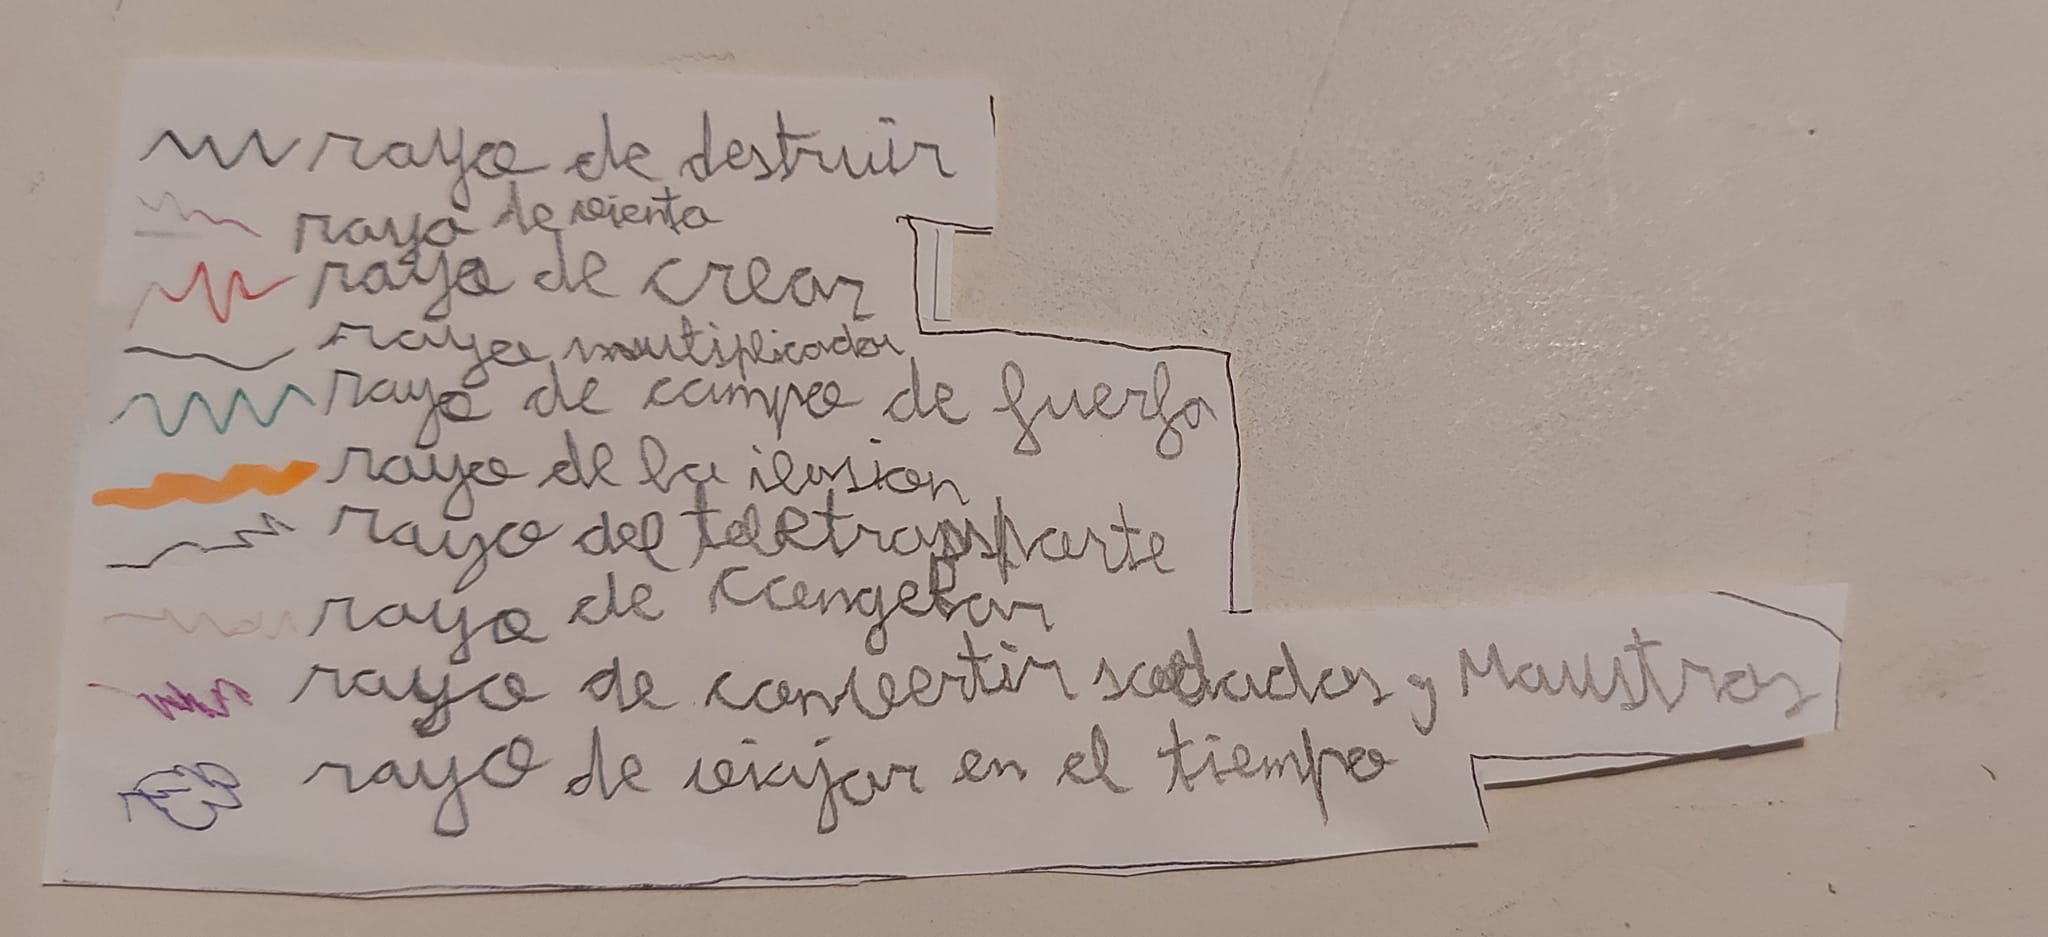 rayo de destruir
rayo de viento
rayo de crear
rayo multiplicador
rayo de campo de fuerza
rayo de la ilusion
rayo del teletransporte
rayo de congelar
rayo de convertir soldados y Maestros
rayo de viajar en el tiempo